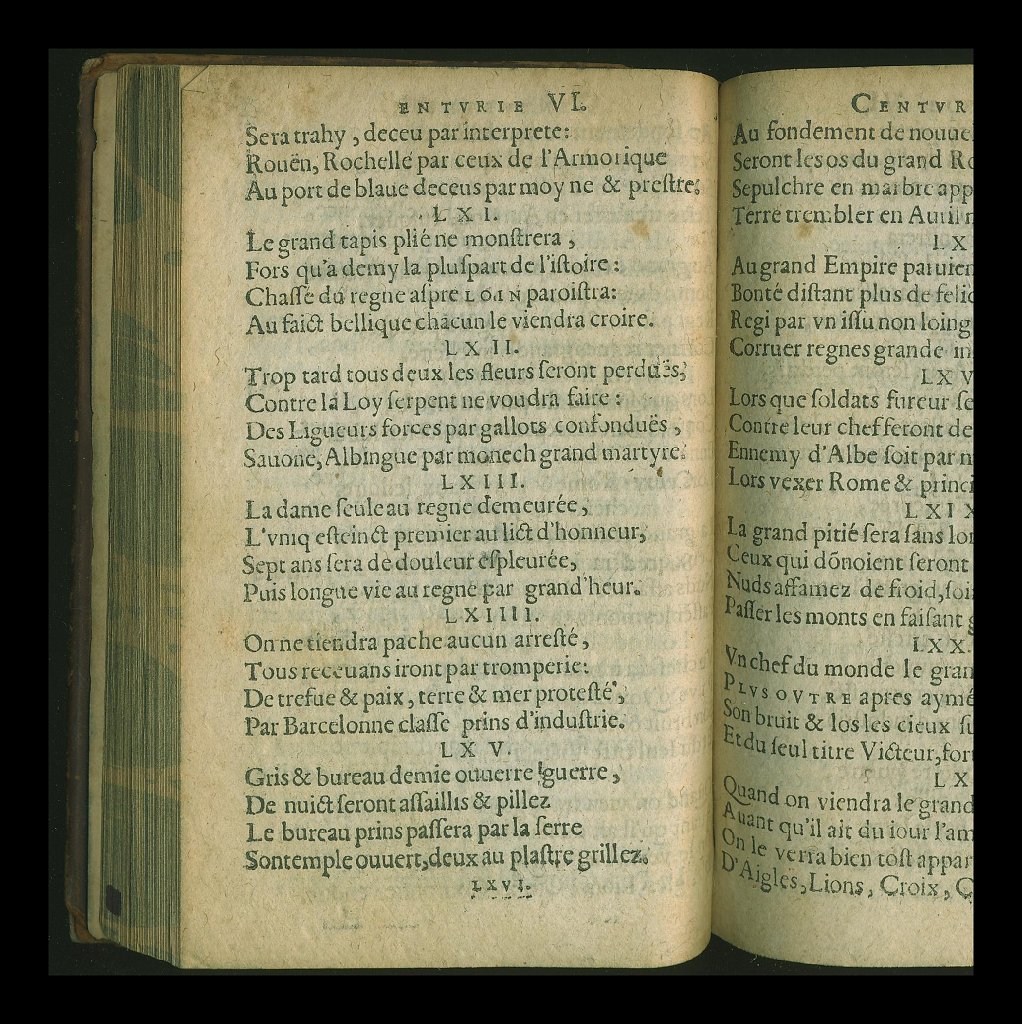 ENTVRIE VI.
Sera trahy, deceu par interprete:
Rouën, Rochelle par ceux de l'Armorique
Au port de blaue deceus par moy ne & prestre:
LXI.
Le grand tapis plié ne monſtrera,
Fors qu'a demy la pluſpart de l'iſtoire:
Chaſſé du regne aſpre LOIN paroiſtra:
Au faict bellique chacun le viendra croire.
LXII.
Trop tard tous deux les fleurs ſeront perduës,
Contre la Loy ſerpent ne voudra faire:
Des Ligueurs forces par gallots confonduës,
Sauone, Albingue par monech grand martyre.
LXIII.
La dame ſeule au regne demeurée,
L'vniq eſteinct premier au lict d'honneur,
Sept ans ſera de douleur eſpleurée,
Puis longue vie au regne par grand'heur.
LXIIII.
On ne tiendra pache aucun arreſté,
Tous receuans iront par tromperie:
De trefue & paix, terre & mer proteſté,
Par Barcelonne claſſe prins d'induſtrie.
LXV.
Gris & bureau demie ouuerre guerre,
De nuict ſeront aſſaillis & pillez
Le bureau prins paſſera par la ſerre
Son temple ouuert, deux au plaſtre grillez.
LXVI.
CENTVR
Au fondement de nouue
Seront les os du grand Ro
Sepulchre en marbre app
Terre trembler en Auril
LX
Au grand Empire paruien
Bonté diſtant plus de felic
Regi par vn iſſu non loing
Corruer regnes grande in
LXV
Lors que ſoldats fureur ſe
Contre leur chef feront de
Ennemy d'Albe ſoit par m
Lors vexer Rome & princi
LXIX
La grand pitié ſera ſans lon
Ceux qui dōnoient ſeront
Nuds affamez de froid, ſoi
Paſſer les monts en faiſant g
LXX.
Vn chef du monde le gran
PLVS OVTRE apres aymé
Son bruit & los les cieux ſu
Et du ſeul titre Victeur, for
LX
Quand on viendra le grand
Auant qu'il ait du iour l'am
On le verra bien toſt appar
D'Aigles, Lions, Croix, C